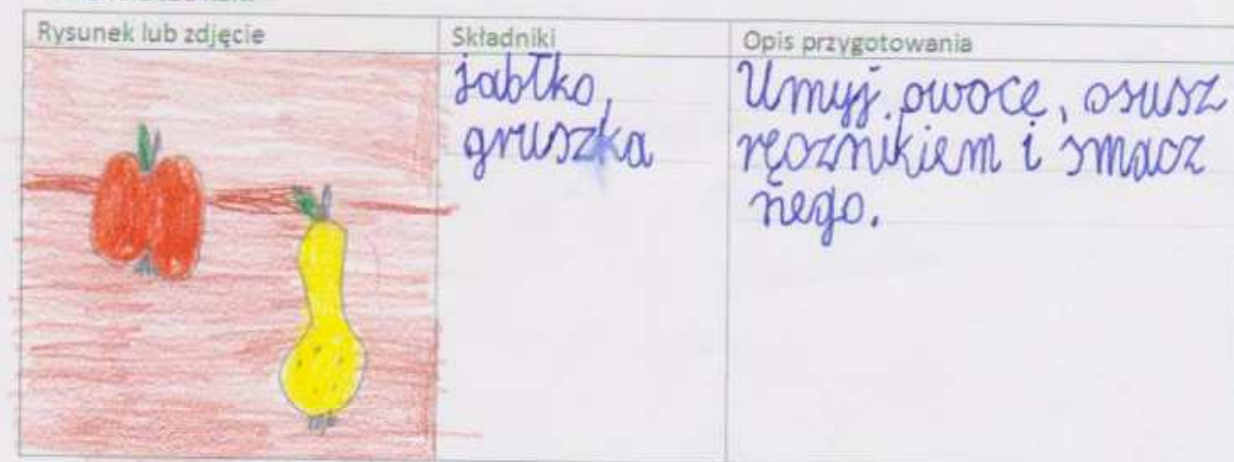 Rysunek lub zdjęcie
Składniki
Opis przygotowania
jabłko,
gruszka
Umyj owoce, osusz
ręcznikiem i smacz
nego.